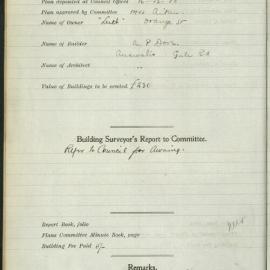 Plan deposited at Council offices
Plan approved by Committee
Name of Owner "Leith" Orange St
Name of Builder A. P. Dove
Name of Architect "
Value of Buildings to be erected £430
Building Surveyor's Report to Committee.
Refer to Council for Awning.
Report Book, folio
Plans Committee Minute Book, page
Building Fee Paid
Remarks.